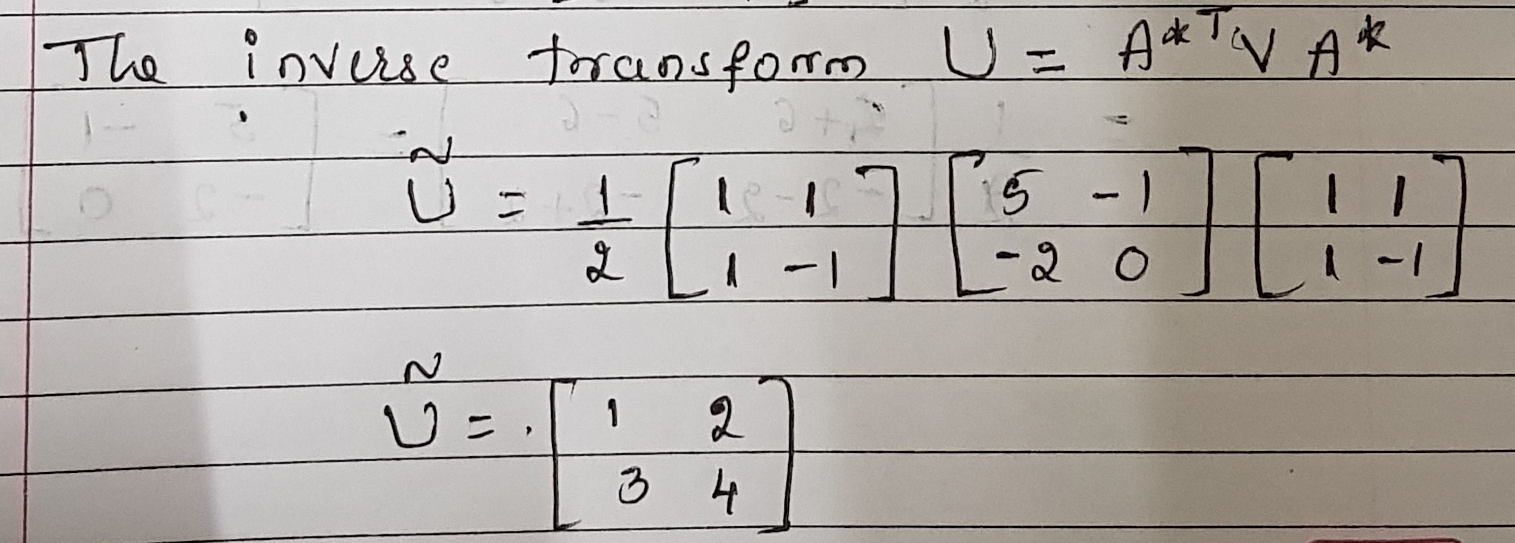 The inverse transform U = A*ᵀ V A*
Ũ = 1/2 [1 1; 1 -1] [5 -1; -2 0] [1 1; 1 -1]
Ũ = [1 2; 3 4]